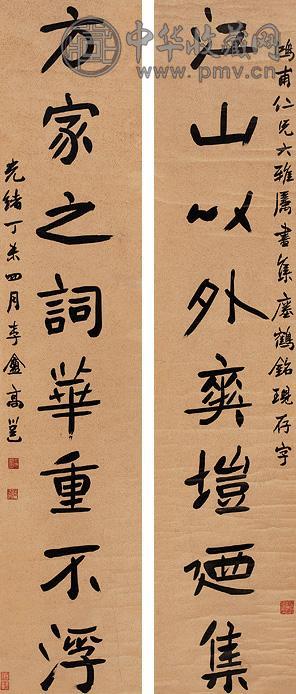 鴻甫仁兄大雅屬書集瘞鶴銘現存字
江山以外爽塏廼集
方家之詞華重不浮
光緒丁未四月李盦高邕
中华收藏网
www.pmv.cn